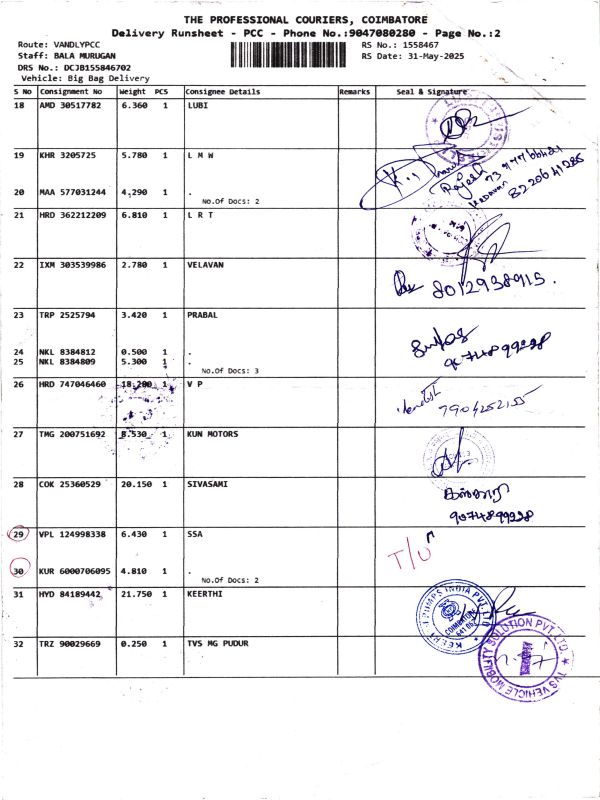 THE PROFESSIONAL COURIERS, COIMBATORE
Delivery Runsheet - PCC - Phone No.:9047080280 - Page No.:2
Route: VANDLYPCC RS No.: 1558467
Staff: BALA MURUGAN RS Date: 31-May-2025
DRS No.: DCJB155846702
Vehicle: Big Bag Delivery
S No Consignment No Weight PCS Consignee Details Remarks Seal & Signature
18 AMD 30517782 6.360 1 LUBI
19 KHR 3205725 5.780 1 L M W
Rajesh
20 MAA 577031244 4.290 1 . 82206 41285
No.Of Docs: 2
21 HRD 362212209 6.810 1 L R T
22 IXM 303539986 2.780 1 VELAVAN
8012938915.
23 TRP 2525794 3.420 1 PRABAL
24 NKL 8384812 0.500 1 .
9074899238
25 NKL 8384809 5.300 1 .
No.Of Docs: 3
26 HRD 747046460 18.200 1 V P
7904252155
27 TMG 200751692 8.530 1 KUN MOTORS
28 COK 25360529 20.150 1 SIVASAMI
9074899238
29 VPL 124998338 6.430 1 SSA
T/U
30 KUR 6000706095 4.810 1 .
No.Of Docs: 2
31 HYD 84189442 21.750 1 KEERTHI
PUMPS INDIA PVT. LTD
COIMBATORE
32 TRZ 90029669 0.250 1 TVS MG PUDUR
TVS VEHICLE MOBILITY SOLUTION PVT. LTD.